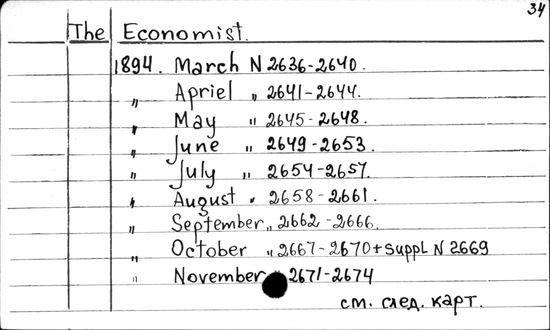 34
The Economist.
1894. March N 2636-2640.
„ Apriel „ 2641-2644.
„ May „ 2645-2648.
„ June „ 2649-2653.
„ July „ 2654-2657.
„ August „ 2658-2661.
„ September „ 2662-2666.
„ October „ 2667-2670+Suppl N 2669
„ November „ 2671-2674
см. след. карт.